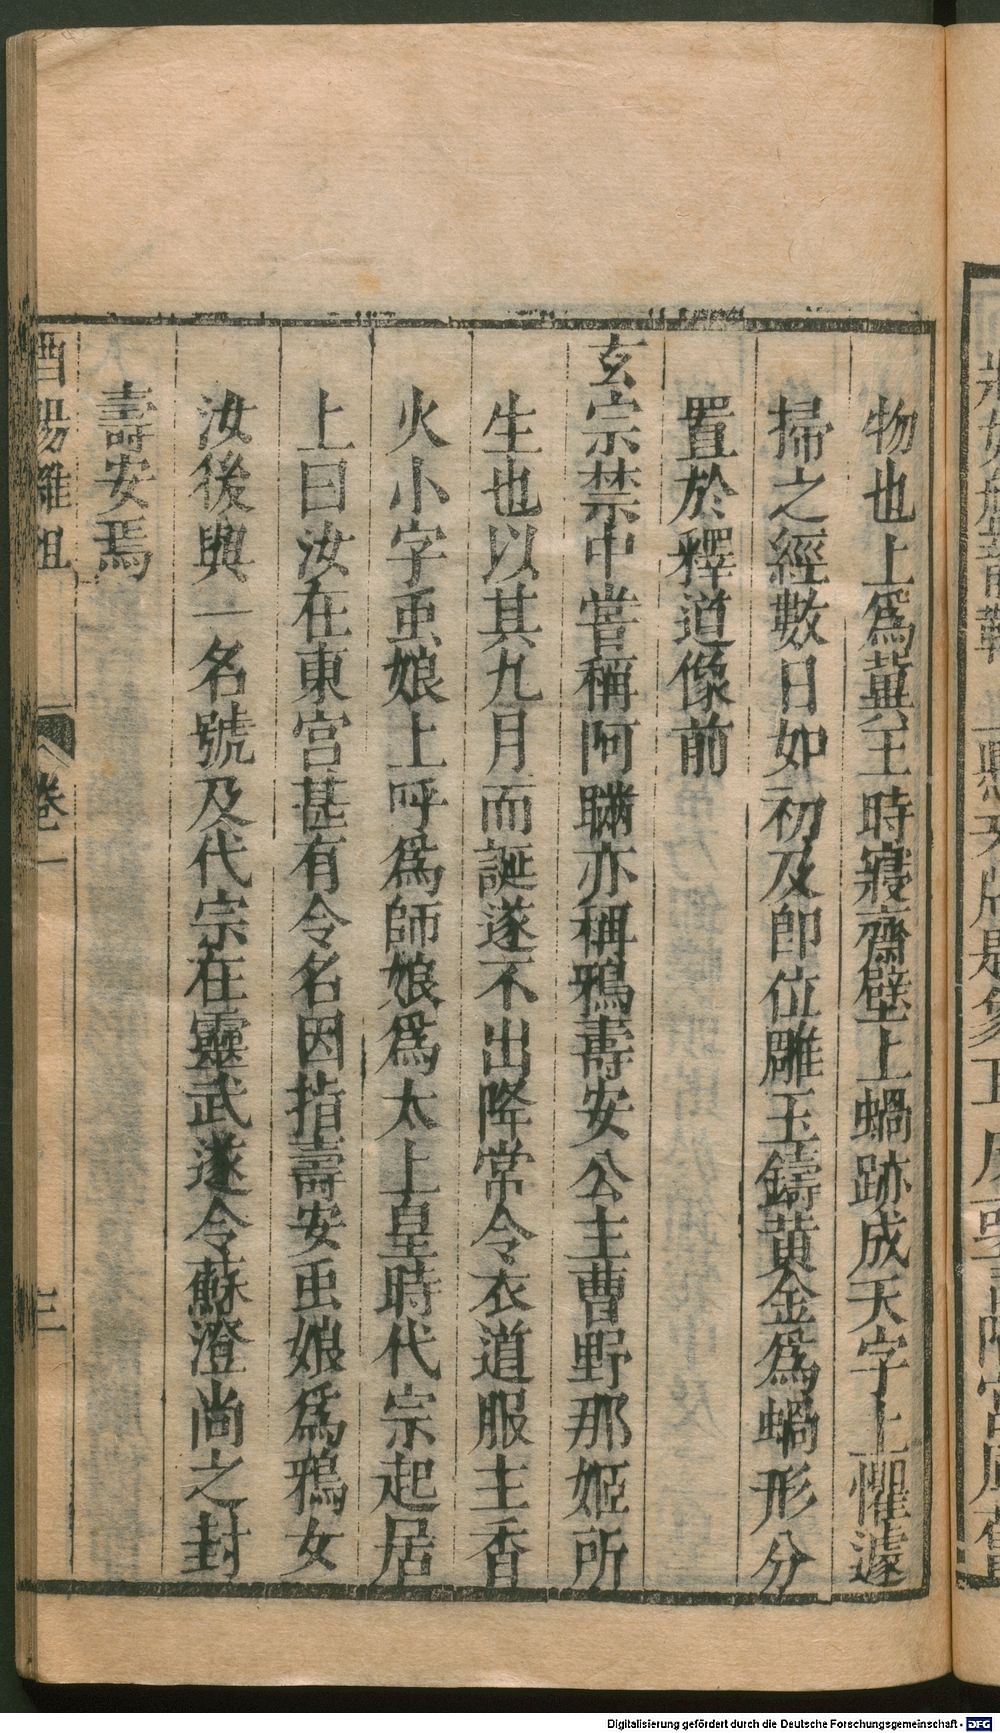 物也上爲冀王時寢齋壁上蝸跡成天字上懼遽
掃之經數日如初及即位雕玉鑄黃金爲蝸形分
置於釋道像前
玄宗禁中嘗稱阿瞞亦稱鴉壽安公主曹野那姬所
生也以其九月而誕遂不出降常令衣道服主香
火小字䖝娘上呼爲師娘爲太上皇時代宗起居
上曰汝在東宮甚有令名因指壽安䖝娘爲鴉女
汝後與一名號及代宗在靈武遂令蘇澄尚之封
壽安焉
酉陽雜俎
卷一
三
Digitalisierung gefördert durch die Deutsche Forschungsgemeinschaft - DFG